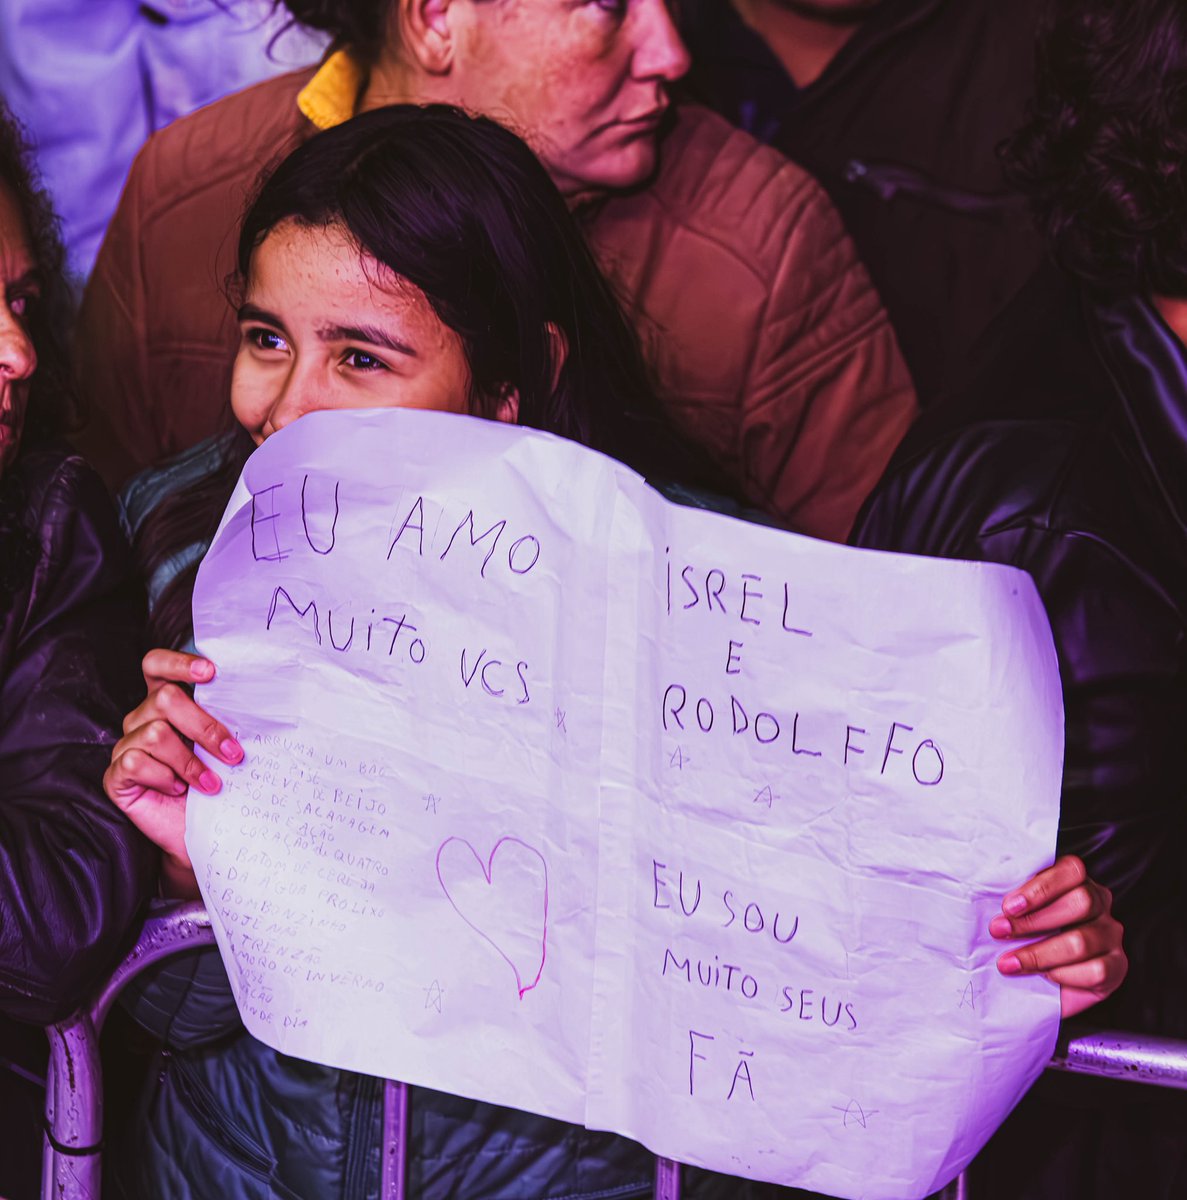 EU AMO
MUiTO VCS
ARRUMA UM BÃO
NÃO PISE
GREVE DE BEIJO
4-SÓ DE SACANAGEM
5- ORAR E AÇÃO
6- CORAÇÃO de QUATRO
7- BATOM DE CEREJA
8- DA ÁGUA PRO LIXO
9- BOMBONZINHO
HOJE NÃO
TRENZÃO
AMOR DE INVERNO
DIA
iSREL
E
RODOLFFO
EU SOU
MUiTO SEUS
FÃ